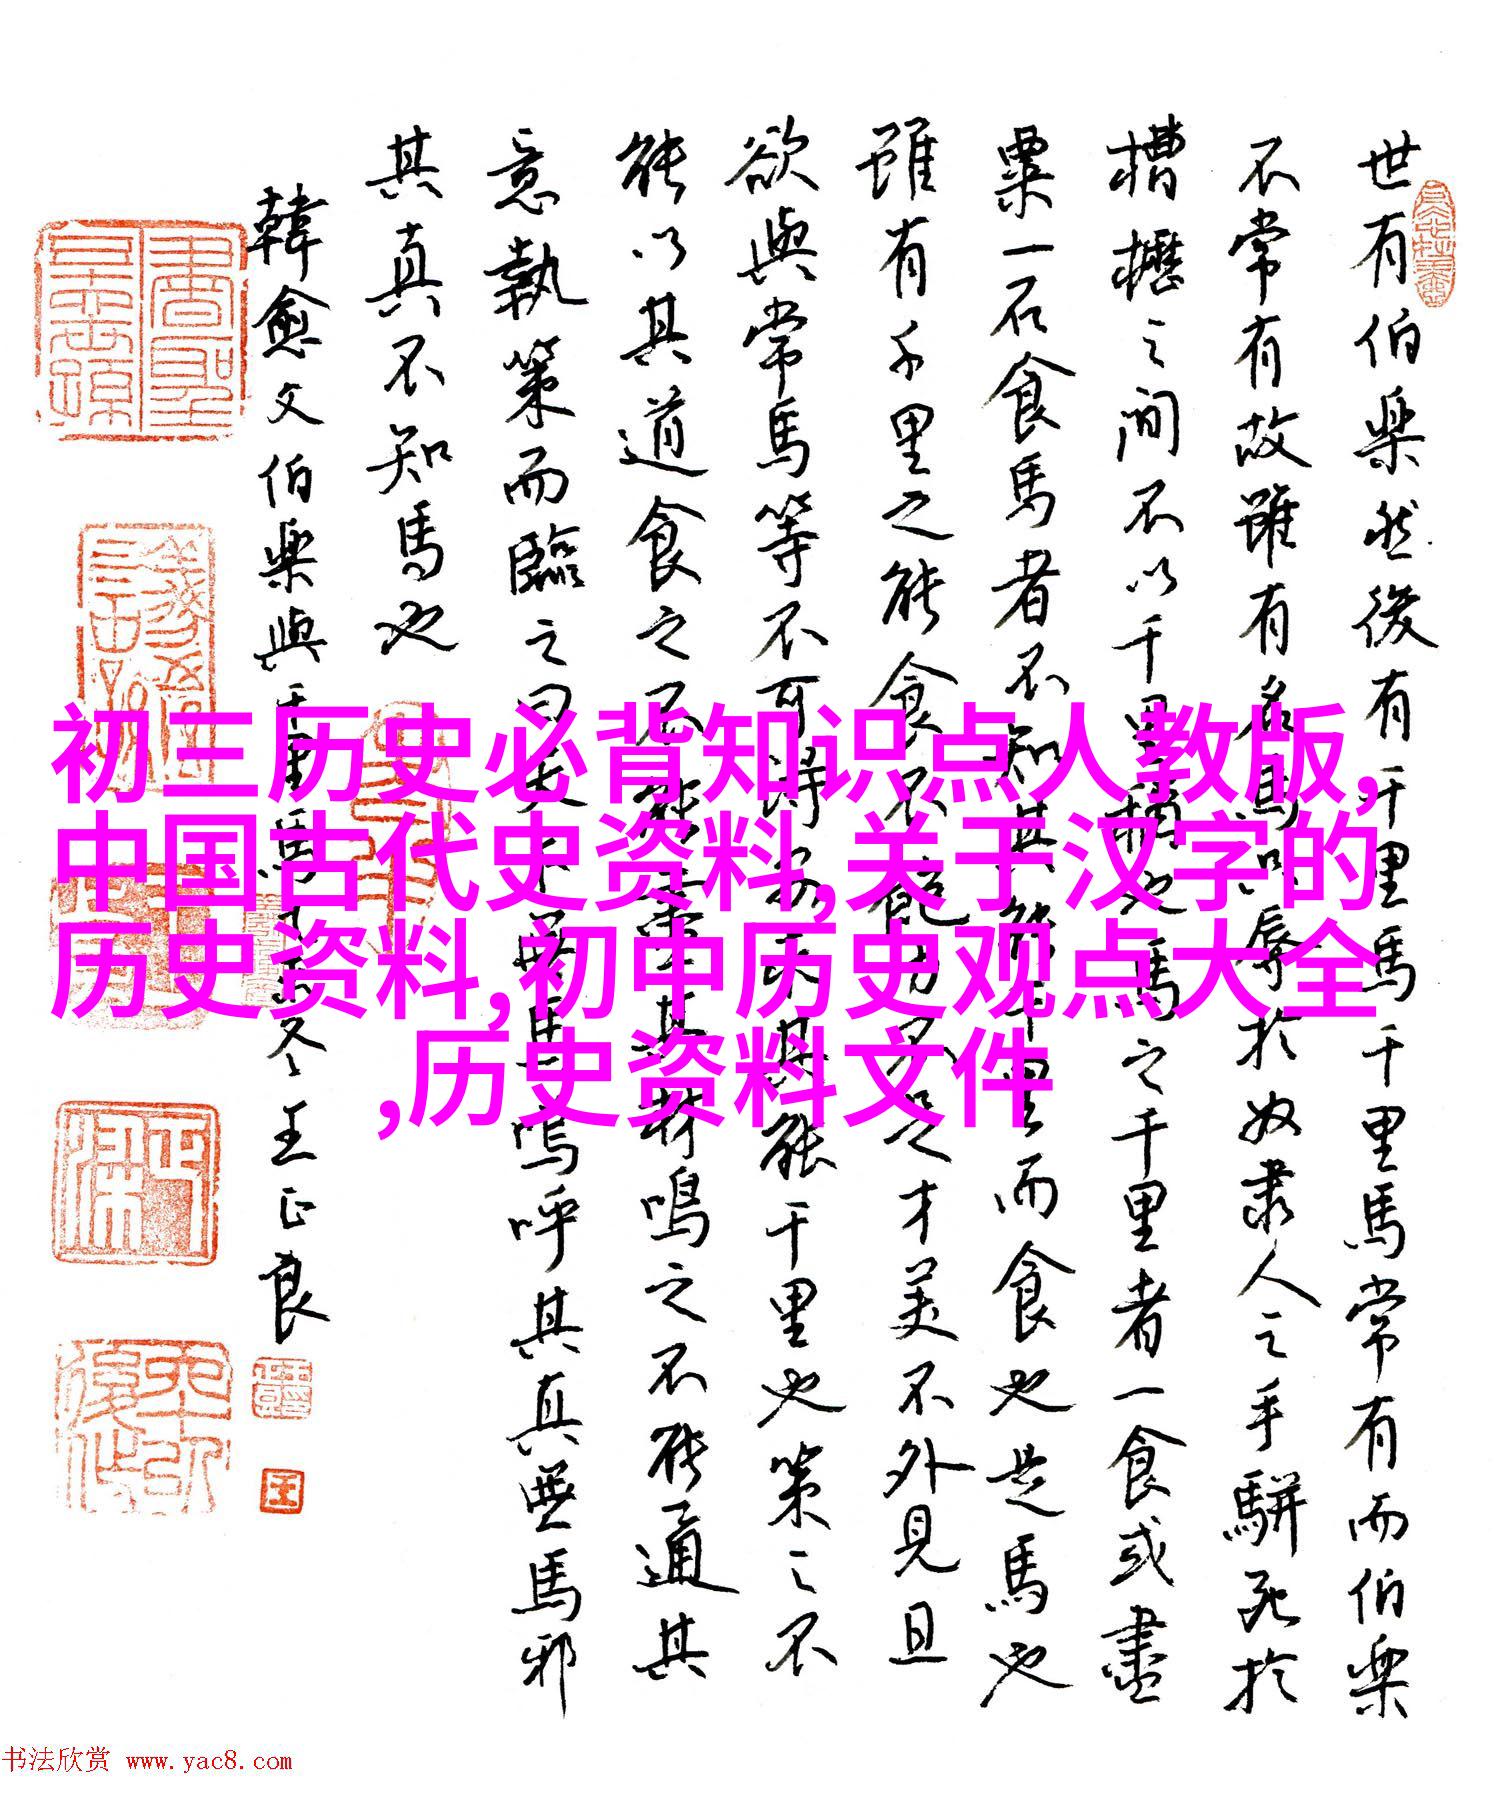 世有伯樂然後有千里馬千里馬常有而伯樂
不常有故雖有名馬祇辱於奴隶人之手駢死於
槽櫪之间不以千里稱也馬之千里者一食或盡
粟一石食馬者不知其能千里而食也是馬也
雖有千里之能食不飽力不足才美不外見且
欲與常馬等不可得安求其能千里也策之不
能以其道食之不能盡其材鳴之不能通其
意執策而臨之曰天下無馬嗚呼其真無馬邪
其真不知馬也
韓愈文伯樂與千里馬冬王正良
王
初三历史必背知识点人教版,
中国古代史资料,关于汉字的
历史资料,初中历史观点大全
,历史资料文件
书法欣赏 www.yac8.com